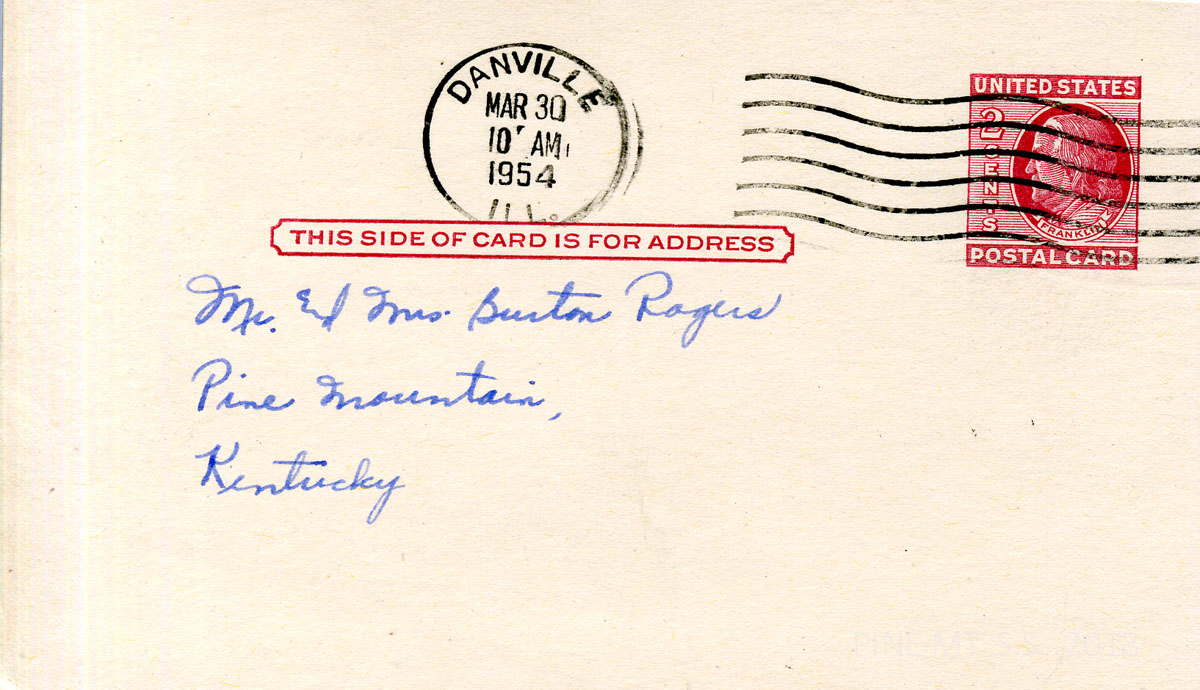 DANVILLE
MAR 30
10 AM
1954
ILL.
UNITED STATES
2 CENTS
FRANKLIN
POSTAL CARD
THIS SIDE OF CARD IS FOR ADDRESS
Mr. & Mrs. Burton Rogers
Pine Mountain,
Kentucky